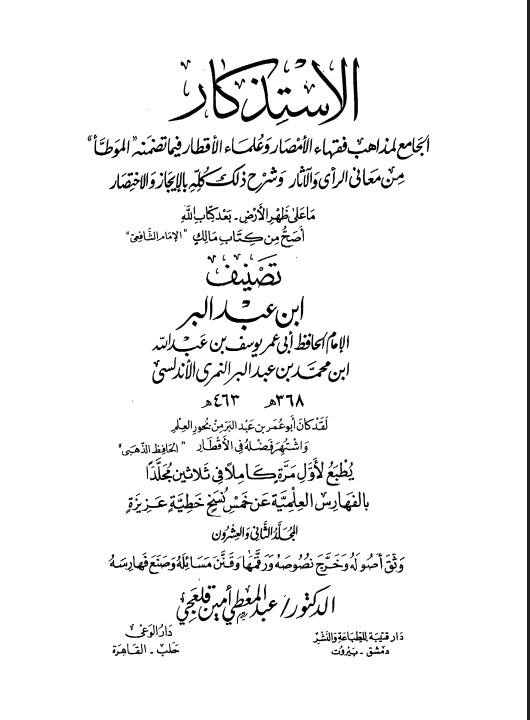 الاستذكار
الجامع لمذاهب فقهاء الأمصار وعلماء الأقطار فيما تضمنه "الموطأ"
من معاني الرأى والآثار وشرح ذلك كله بالإيجاز والاختصار
ما على ظهر الأرض - بعد كتاب الله
أصح من كتاب مالك "الإمام الشافعي"
تصنيف
ابن عبد البر
الإمام الحافظ أبي عمر يوسف بن عبد الله
ابن محمد بن عبد البر النمرى الأندلسى
٣٦٨هـ ٤٦٣هـ
لقد كان أبو عمر بن عبد البر من بحور العلم
واشتهر فضله في الأقطار "الحافظ الذهبى"
يُطبَعُ لأوّلِ مَرّةٍ كاملاً في ثلاثين مجلّدًا
بالفهارس العلميّة عن خمس نسخ خطيّة عزيزة
المجلد الثاني والعشرون
وثق أصوله وخرّج نصوصه ورقّمها وقنّن مسائله وصنع فهارسه
الدكتور/ عبد المعطي أمين قلعجي
دار قتيبة للطباعة والنشر
دمشق - بيروت
دار الوعى
حلب - القاهرة